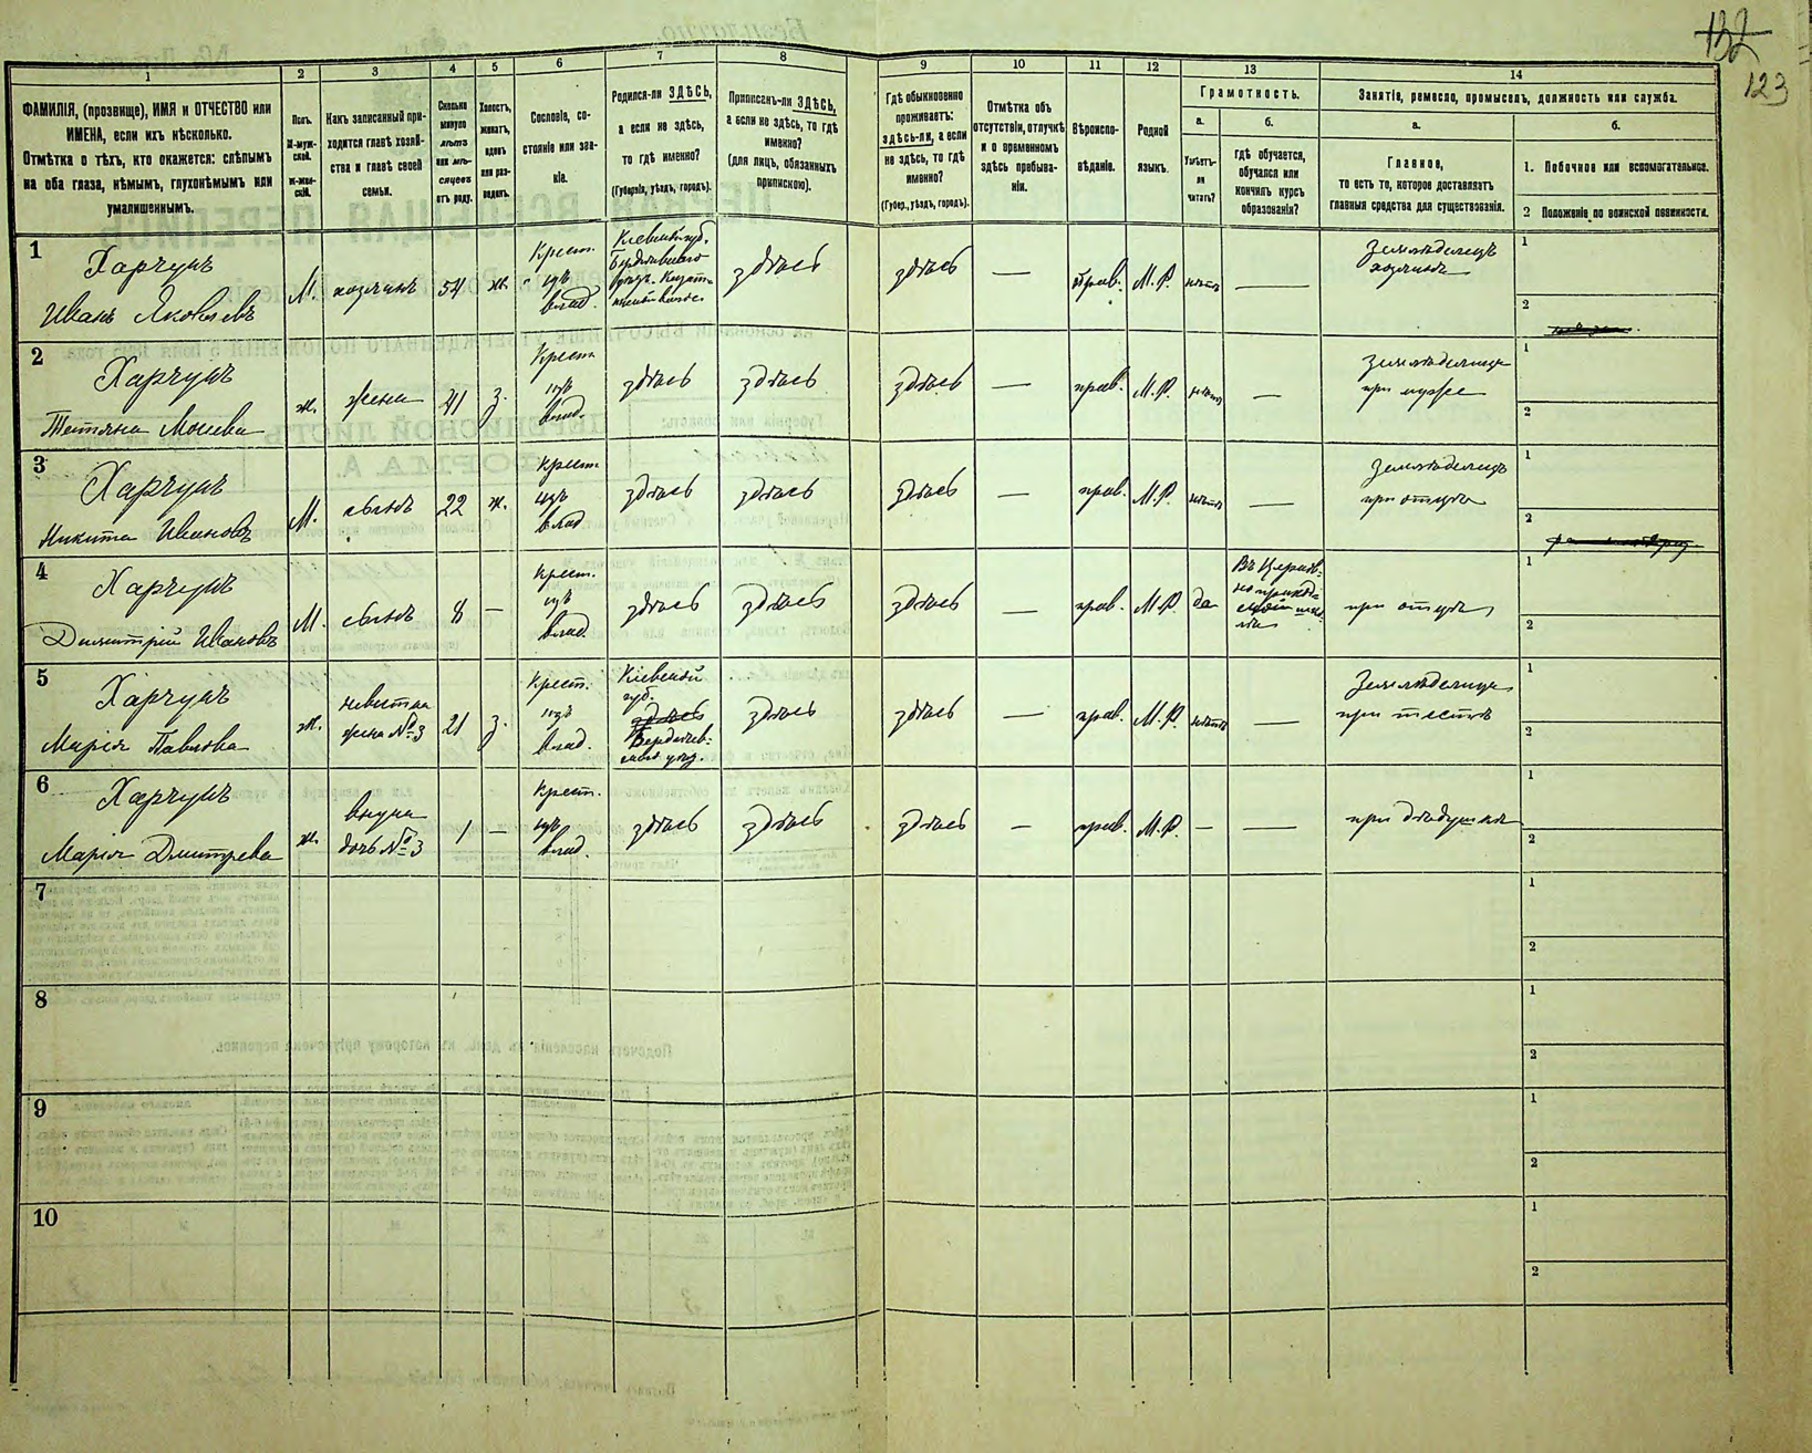 132
123
1
2
3
4
5
6
7
8
9
10
11
12
13
14
ФАМИЛІЯ, (прозвище), ИМЯ и ОТЧЕСТВО или
ИМЕНА, если ихъ нѣсколько.
Отмѣтка о тѣхъ, кто окажется: слѣпымъ
на оба глаза, нѣмымъ, глухонѣмымъ или
умалишеннымъ.
Полъ.
М-муж-
ской.
Ж-жен-
скій.
Какъ записанный при-
ходится главѣ хозяй-
ства и главѣ своей
семьи.
Сколько
минуло
лѣтъ
или мѣ-
сяцевъ
отъ роду.
Холостъ,
женатъ,
вдовъ
или раз-
веденъ.
Сословіе, со-
стояніе или зва-
ніе.
Родился-ли ЗДѢСЬ,
а если не здѣсь,
то гдѣ именно?
(Губернія, уѣздъ, городъ).
Приписанъ-ли ЗДѢСЬ,
а если не здѣсь, то гдѣ
именно?
(для лицъ, обязанныхъ
припискою).
Гдѣ обыкновенно
проживаетъ:
ЗДѢСЬ-ЛИ, а если
не здѣсь, то гдѣ
именно?
(Губер., уѣздъ, городъ).
Отмѣтка объ
отсутствіи, отлучкѣ
и о временномъ
здѣсь пребыва-
ніи.
Вѣроиспо-
вѣданіе.
Родной
языкъ.
Грамотность.
а.
Умѣетъ-
ли
читать?
б.
гдѣ обучается,
обучался или
кончилъ курсъ
образованія?
Занятіе, ремесло, промыселъ, должность или служба.
а.
Главное,
то есть то, которое доставляетъ
главныя средства для существованія.
б.
1. Побочное или вспомогательное.
2 Положеніе по воинской повинности.
1
Харчукъ
Иванъ Яковлевъ
М.
хозяинъ
54
ж.
Крест.
изъ
влад.
Кіевской губ.
Бердичевскаго
здѣсь
здѣсь
—
Прав.
М.Р.
нѣтъ
—
Земледѣлецъ
хозяинъ
1
2
2
Харчукъ
Татьяна
ж.
жена
41
з.
Крест
изъ
влад.
здѣсь
здѣсь
здѣсь
—
прав.
М.Р.
нѣтъ
—
при мужѣ
1
2
3
Харчукъ
Никита Ивановъ
М.
сынъ
22
ж.
Крест
изъ
влад
здѣсь
здѣсь
здѣсь
—
прав.
М.Р.
нѣтъ
—
Земледѣлецъ
при отцѣ
1
2
4
Харчукъ
Димитрій Ивановъ
М.
сынъ
8
—
Крест.
изъ
влад.
здѣсь
здѣсь
здѣсь
—
прав.
М.Р.
да
Въ Церков-
но приход-
ской шко-
лѣ
при отцѣ
1
2
5
Харчукъ
Марія Павлова
ж.
невѣстка
жена №3
21
з.
Крест.
изъ
влад.
Кіевской
губ.
здѣсь
Бердичев-
здѣсь
здѣсь
—
прав.
М.Р.
нѣтъ
—
при тестѣ
1
2
6
Харчукъ
Марія Дмитрева
ж.
внука
дочь №3
1
—
Крест.
изъ
влад.
здѣсь
здѣсь
здѣсь
—
прав.
М.Р.
—
—
при дѣдушкѣ
1
2
7
1
2
8
1
2
9
1
2
10
1
2